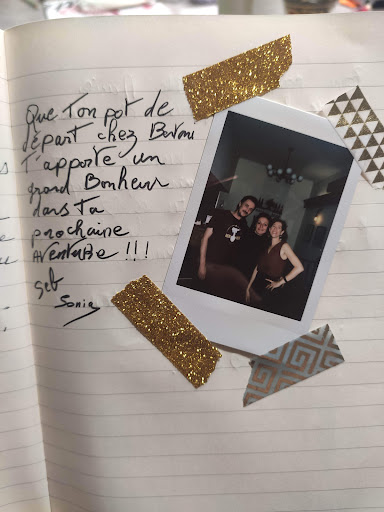 Que ton pot de
départ chez
t'apporte un
grand Bonheur
dans ta
prochaine
Aventure !!!
Seb
Sonia